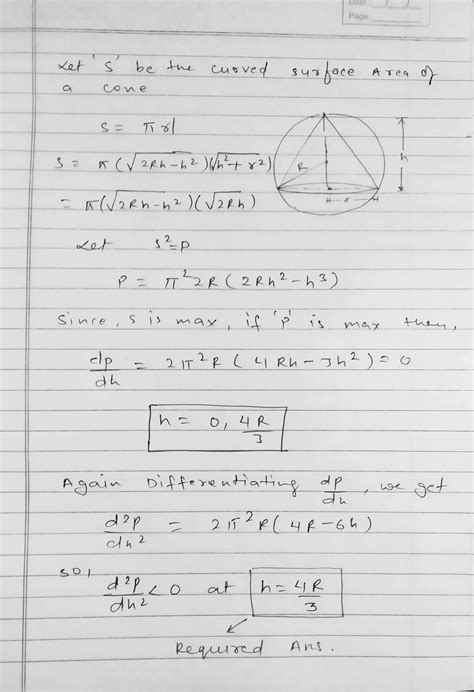 Date
Page
Let 'S' be the curved surface Area of
a cone
S = πrl
S = π(√2Rh-h²)(√h²+r²)
= π(√2Rh-h²)(√2Rh)
R
h
r
Let S²=P
P = π²2R(2Rh²-h³)
Since, S is max, if 'P' is max then,
dp/dh = 2π²R(4Rh-3h²)=0
h = 0, 4R/3
Again Differentiating dp/dh, we get
d²p/dh² = 2π²R(4R-6h)
So, d²p/dh² < 0 at h = 4R/3
Required Ans.